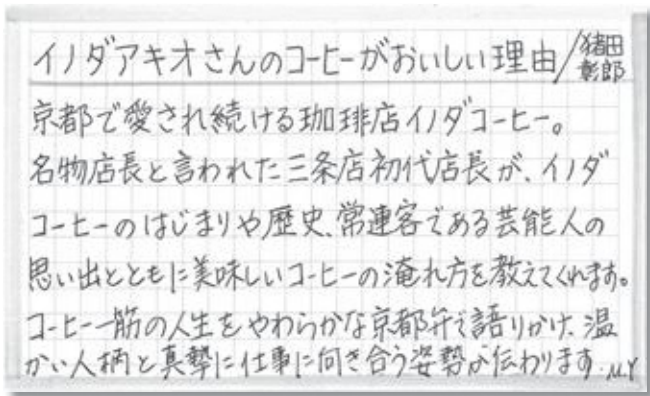 イノダアキオさんのコーヒーがおいしい理由/猪田彰郎
京都で愛され続ける珈琲店イノダコーヒー。
名物店長と言われた三条店初代店長が、イノダ
コーヒーのはじまりや歴史、常連客である芸能人の
思い出とともに美味しいコーヒーの淹れ方を教えてくれます。
コーヒー一筋の人生をやわらかな京都弁で語りかけ、温
かい人柄と真摯に仕事に向き合う姿勢が伝わります。MY